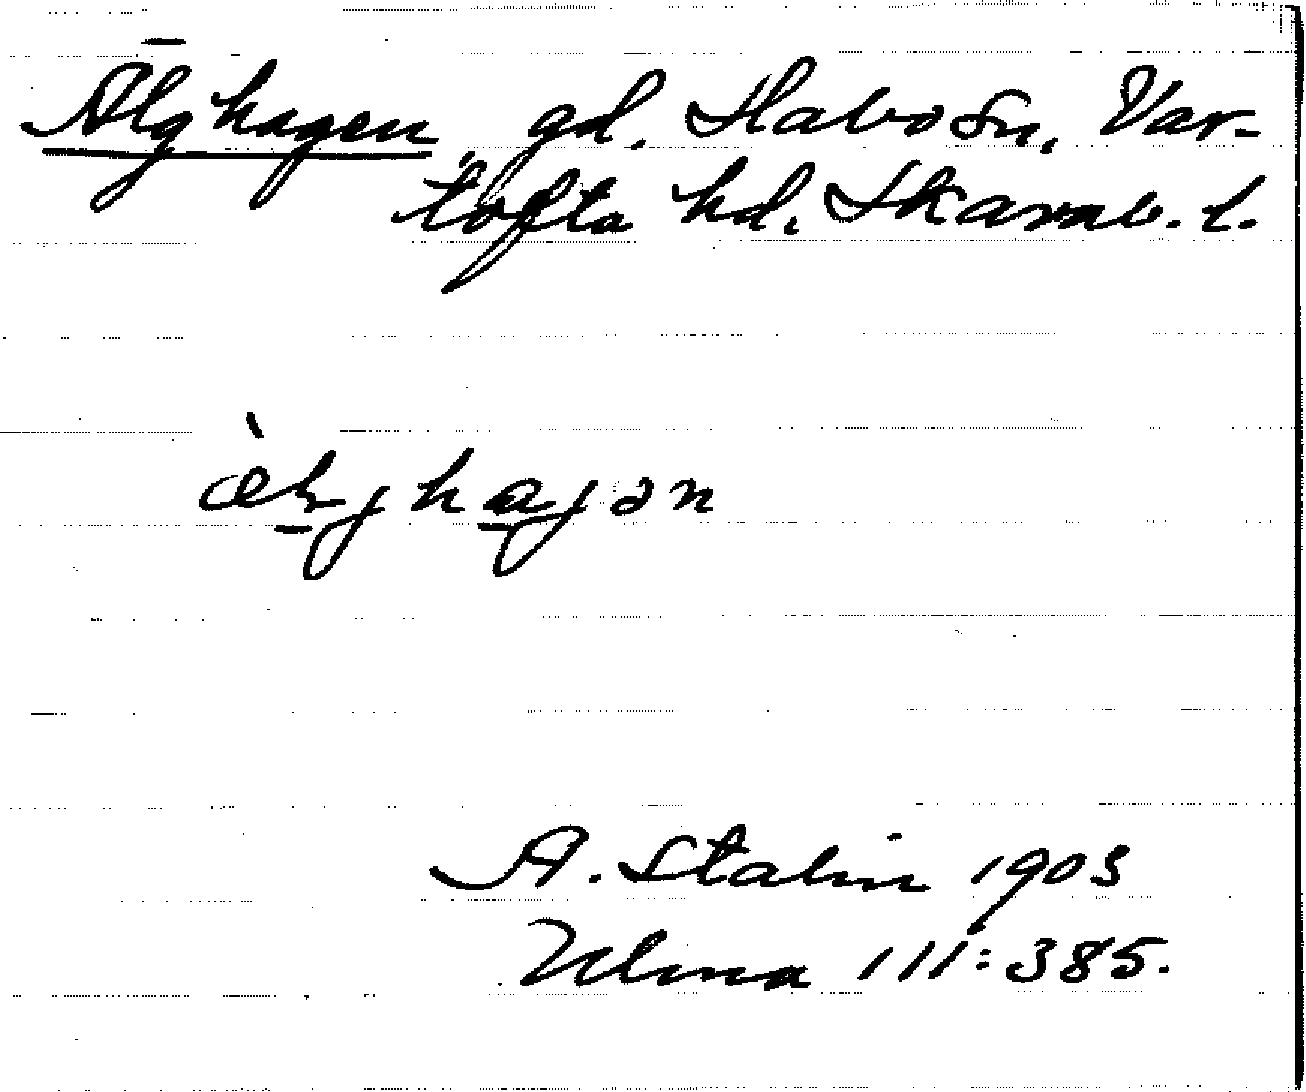 Älghagen, gd. Habo sn, Var-
tofta hd. Skarab. l.
æ̀lghagən
A. Stalin 1903
Ulma 111:385.